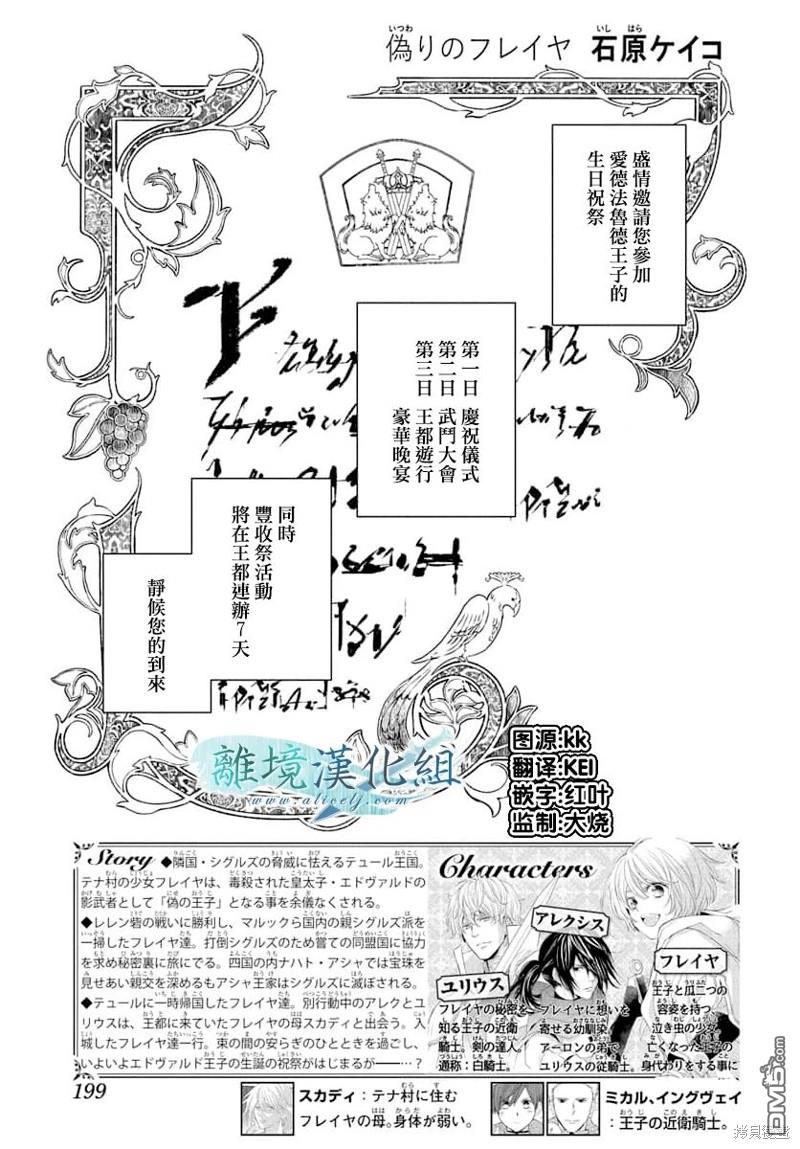 偽りのフレイヤ 石原ケイコ
盛情邀請您參加
愛德法魯德王子的
生日祝祭
第一日 慶祝儀式
第二日 武鬥大會
第三日 王都遊行
豪華晚宴
同時
豐收祭活動
將在王都連辦7天
靜候您的到來
離境漢化組
www.alicelj.com
图源:kk
翻译:KEI
嵌字:红叶
监制:大烧
Story ◆隣国・シグルズの脅威に怯えるテュール王国。
テナ村の少女フレイヤは、毒殺された皇太子・エドヴァルドの
影武者として「偽の王子」となる事を余儀なくされる。
◆レレン砦の戦いに勝利し、マルックら国内の親シグルズ派を
一掃したフレイヤ達。打倒シグルズのため嘗ての同盟国に協力
を求め秘密裏に旅にでる。四国の内ナハト・アシャでは宝珠を
見せあい親交を深めるもアシャ王家はシグルズに滅ぼされる。
◆テュールに一時帰国したフレイヤ達。別行動中のアレクとユ
リウスは、王都に来ていたフレイヤの母スカディと出会う。入
城したフレイヤ達一行。束の間の安らぎのひとときを過ごし、
いよいよエドヴァルド王子の生誕の祝祭がはじまるが――?
Characters
ユリウス
フレイヤの秘密を
知る王子の近衛
騎士。剣の達人。
通称：白騎士。
アレクシス
フレイヤに想いを
寄せる幼馴染。
アーロンの弟で
ユリウスの従騎士。
フレイヤ
王子と瓜二つの
容姿を持つ、
泣き虫の少女。
亡くなった王子の
身代わりをする事に
199
スカディ：テナ村に住む
フレイヤの母。身体が弱い。
ミカル、イングヴェイ
：王子の近衛騎士。
DM5.com
拷贝漫画